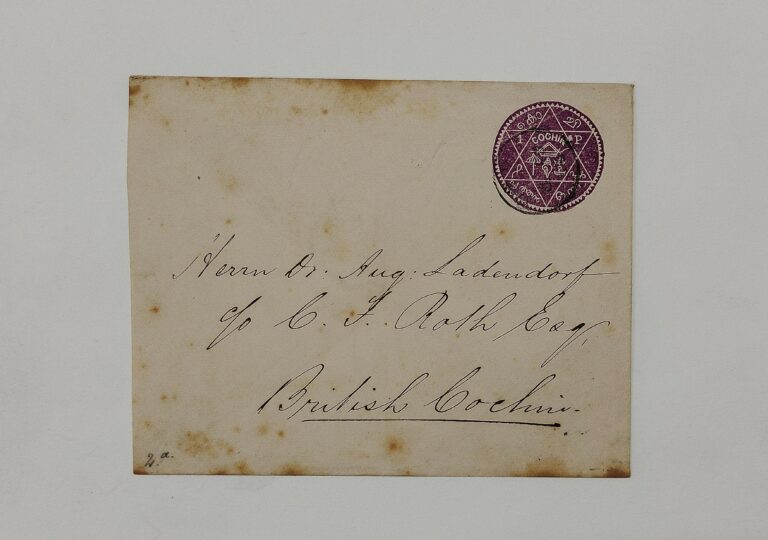 കൊ ചി
1 P
COCHIN
Herrn Dr. Aug: Ladendorf
c/o C. F. Roth Esq,
British Cochin.
2.a.